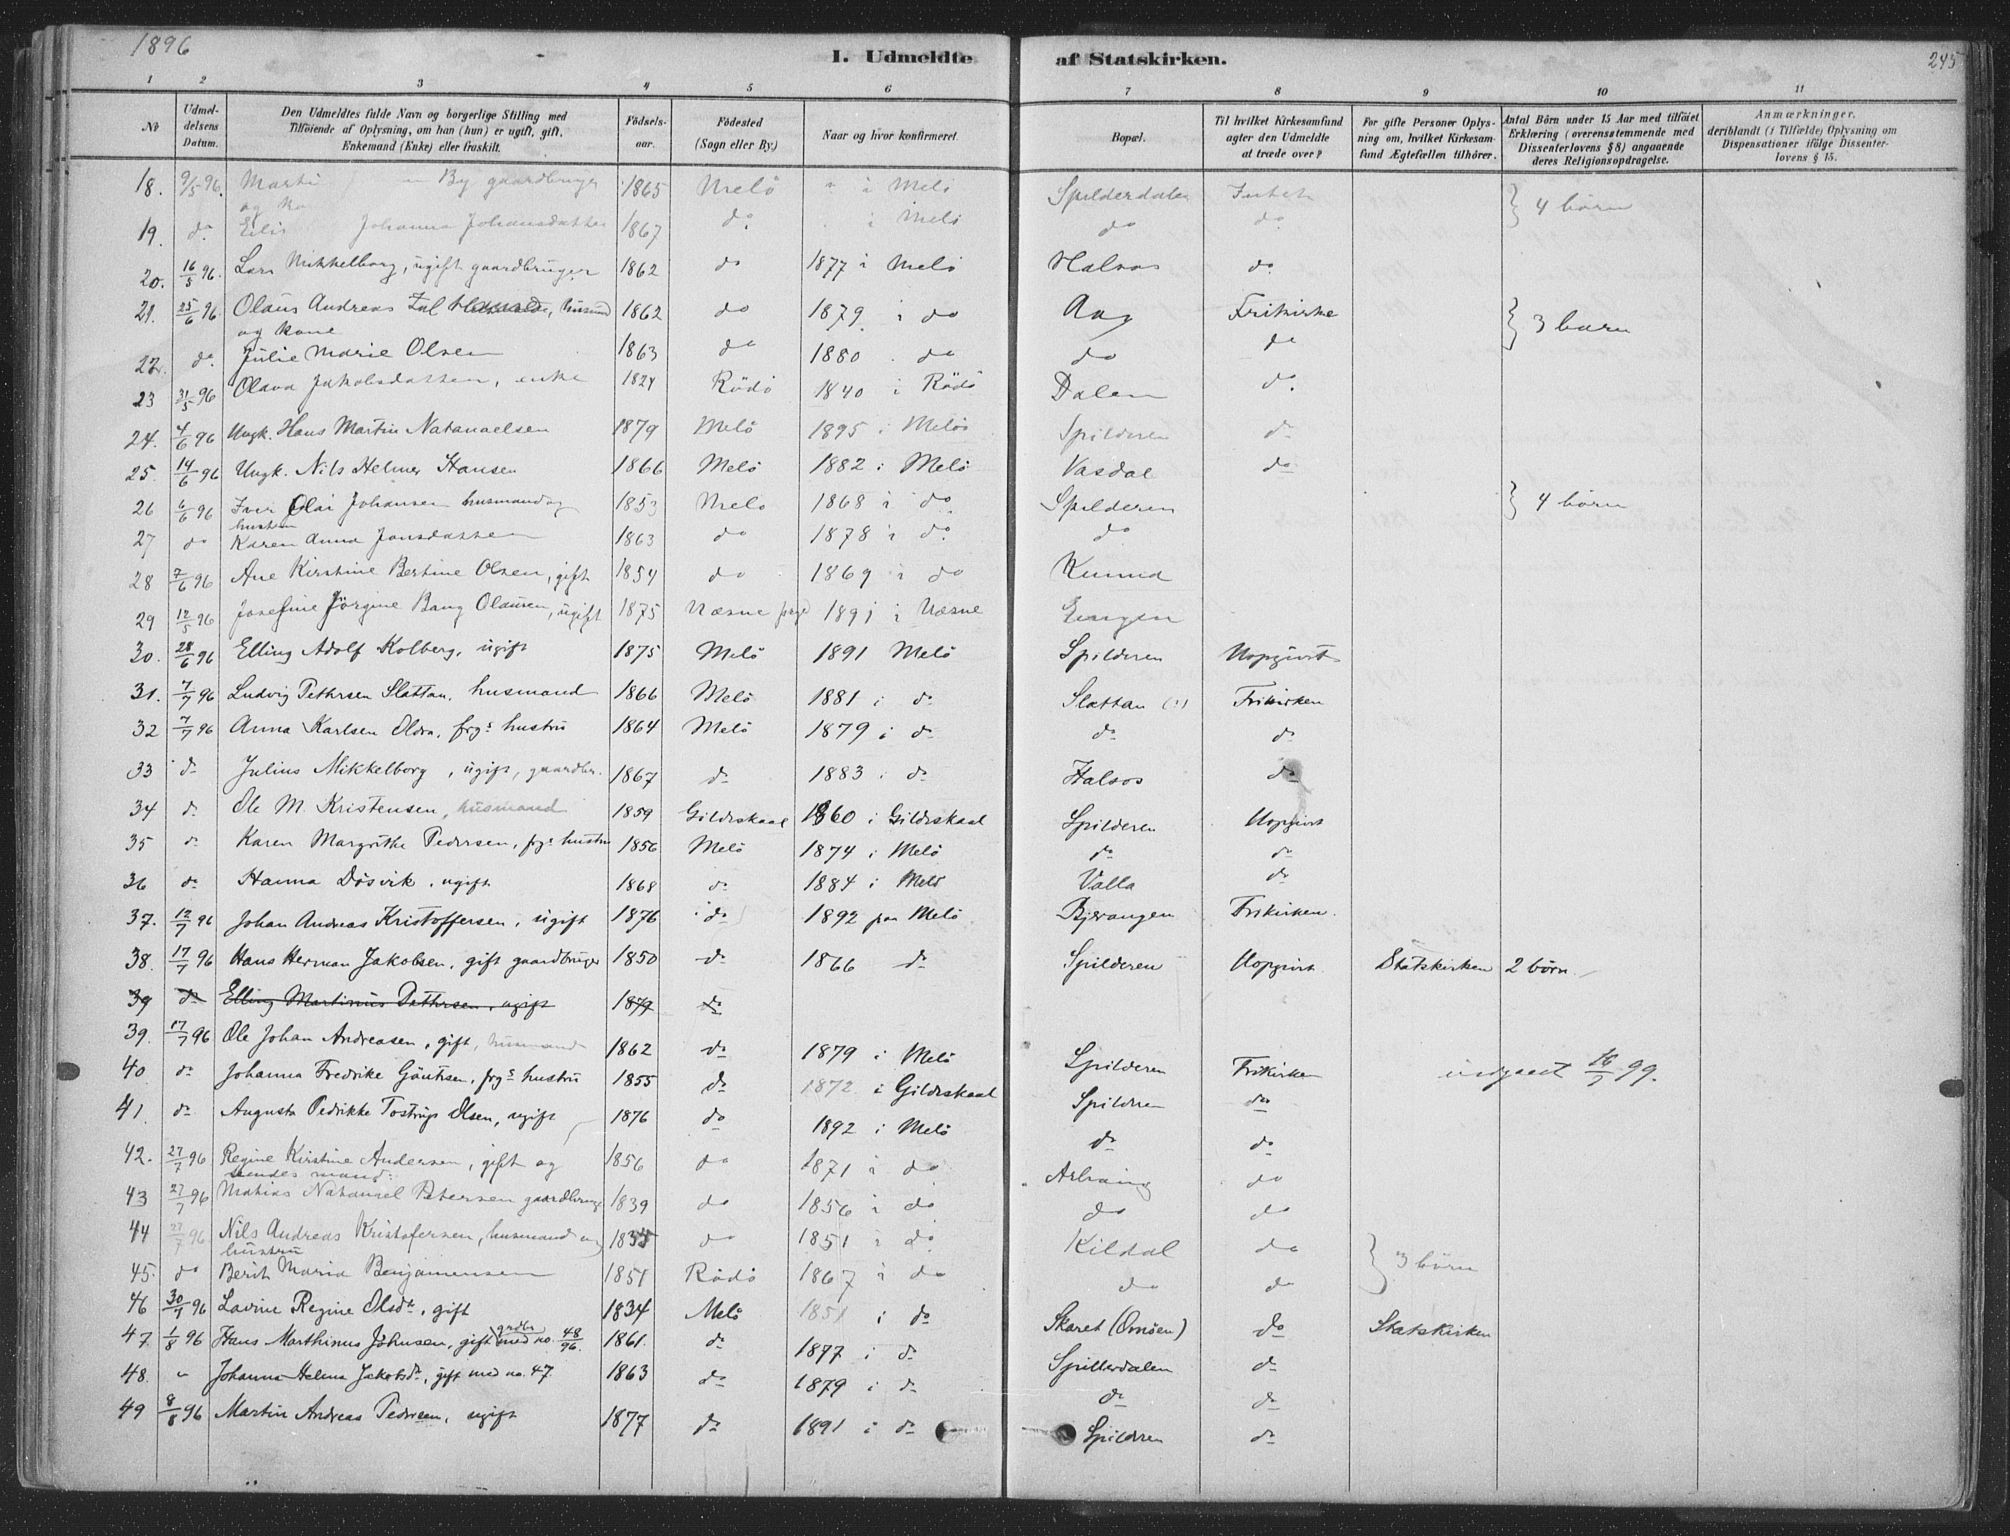 1896
I. Udmeldte af Statskirken.
245
1 2 3 4 5 6 7 8 9 10 11
No
Udmel-
delsens
Datum.
Den Udmeldtes fulde Navn og borgerlige Stilling med
Tilföiende af Oplysning, om han (hun) er ugift, gift,
Enkemand (Enke) eller fraskilt.
Födsels-
aar.
Födested
(Sogn eller By.)
Naar og hvor konfirmeret.
Bopæl.
Til hvilket Kirkesamfund
agter den Udmeldte
at træde over?
For gifte Personer Oplys-
ning om, hvilket Kirkesam-
fund Ægtefællen tilhörer.
Antal Börn under 15 Aar med tilföiet
Erklæring (overensstemmende med
Dissenterlovens § 8) angaaende
deres Religionsopdragelse.
Anmærkninger,
deriblandt (i Tilfælde) Oplysning om
Dispensationer ifölge Dissenter-
lovens § 15.
18. 9/5 96. By gaardbruger 1865 Melö i Melö Spilderdalen Intet } 4 börn
19. do Johanna Johansdatter 1867 do i Melö do do
20. 16/5 96. Lars Mikkelborg, ugift gaardbruger 1862 do 1877 i Melö Halsos do
21. 25/6 96 Olaus Andreas 1862 do 1879 i do Aag Frikirke } 3 barn
og kone
22. do Julie Marie Olsen 1863 do 1880 do do do
23 31/5 96 Olava Jakobsdatter, enke 1824 Rödö 1840 i Rödö Dalen do
24. 4/6 96 Ungk. Hans Martin Natanaelsen 1879 Melö 1895 i Melö Spilderen do
25. 14/6 96 Ungk. Nils Helmer Hansen 1866 Melö 1882 i Melö Vasdal do
26 6/6 96 Iver Olai Johansen husmand og 1853 Melö 1868 i do Spilderen } 4 börn
hustru
27 do Karen Anna Jonsdatter 1863 do 1878 i do do
28 7/6 96 Ane Kirstine Bertine Olsen, gift 1854 do 1869 i do Kunna
29 12/5 96 Josefine Jörgine Bang Olausen, ugift 1875 Næsne 1891 i Næsne Engen
30. 28/6 96 Elling Adolf Kolberg, ugift 1875 Melö 1891 Melö Spilderen Uopgivet
31. 7/7 96 Ludvig Pethrsen Slattan, husmand 1866 Melö 1881 i do Slattan (?) Frikirken
32 7/7 96 Anna Karlsen Oldra, frgs hustru 1864 Melö 1879 i do do do
33 do Julius Mikkelborg, ugift, gaardbr. 1867 do 1883 i do Halsos do
34 do Ole M. Kristensen, husmand 1859 Gildeskaal 1860 i Gildeskaal Spilderen Uopgivet
35 do Karen Margrithe Pedersen, frgs hustru 1856 Melö 1874 i Melö do do
36 do Hanna Dösvik, ugift 1868 do 1884 i Melö Valla do
37. 12/7 96 Johan Andreas Kristoffersen, ugift 1876 do 1892 paa Melö Bjerangen Frikirken.
38. 17/7 96 Hans Herman Jakobsen, gift gaardbruger 1850 do 1866 do Spilderen Uopgivet Statskirken 2 börn
39 do Elling Martinus Pethrsen, ugift 1879 do
39. 17/7 96 Ole Johan Andreasen, gift, husmand 1862 do 1879 i Melö Spilderen Frikirken 16/7 99.
40 do Johanna Fredrike Göutsen, frgs hustru 1855 do 1872 i Gildeskaal Spildren do
41. do Augusta Pedrikke Tostrup Olsen, ugift 1876 do 1892 i Melö do do
42. 27/7 96 Regine Kirstine Andersen, gift og 1856 do 1871 i do Arhaug do
hendes mand:
43 27/7 96 Mathias Natanael Petersen gaardbruger 1839 do 1856 i do do do
44 27/7 96 Nils Andreas Kristofersen, husmand og 1835 do 1851 i do Kildal do } 3 börn
hustru
45. do Berit Maria Benjamensen 1851 Rödö 1867 i do do do
46 30/7 96 Lavine Regine Olsdr, gift 1834 Melö 1851 i do Skaret (Omöen) do Statskirken
47. 1/8 96 Hans Marthinus Johnsen, gift med no. 48/96. grdbr 1861. do 1877 i do Spillerdalen do
48. " Johanna Helena Jakobsdr, gift med no. 47 1863 do 1879 i do do do
49 8/8 96 Martin Andreas Pedersen, ugift 1877 do 1891 i do Spildren do